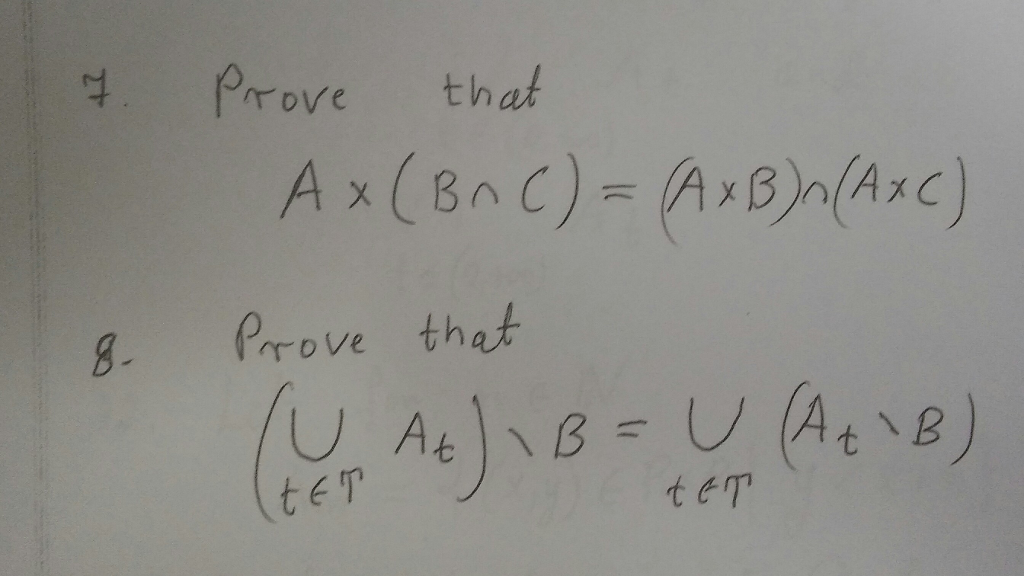 7. Prove that
A × (B ∩ C) = (A × B) ∩ (A × C)
8. Prove that
(⋃ A_t) \ B = ⋃ (A_t \ B)
t ∈ T t ∈ T